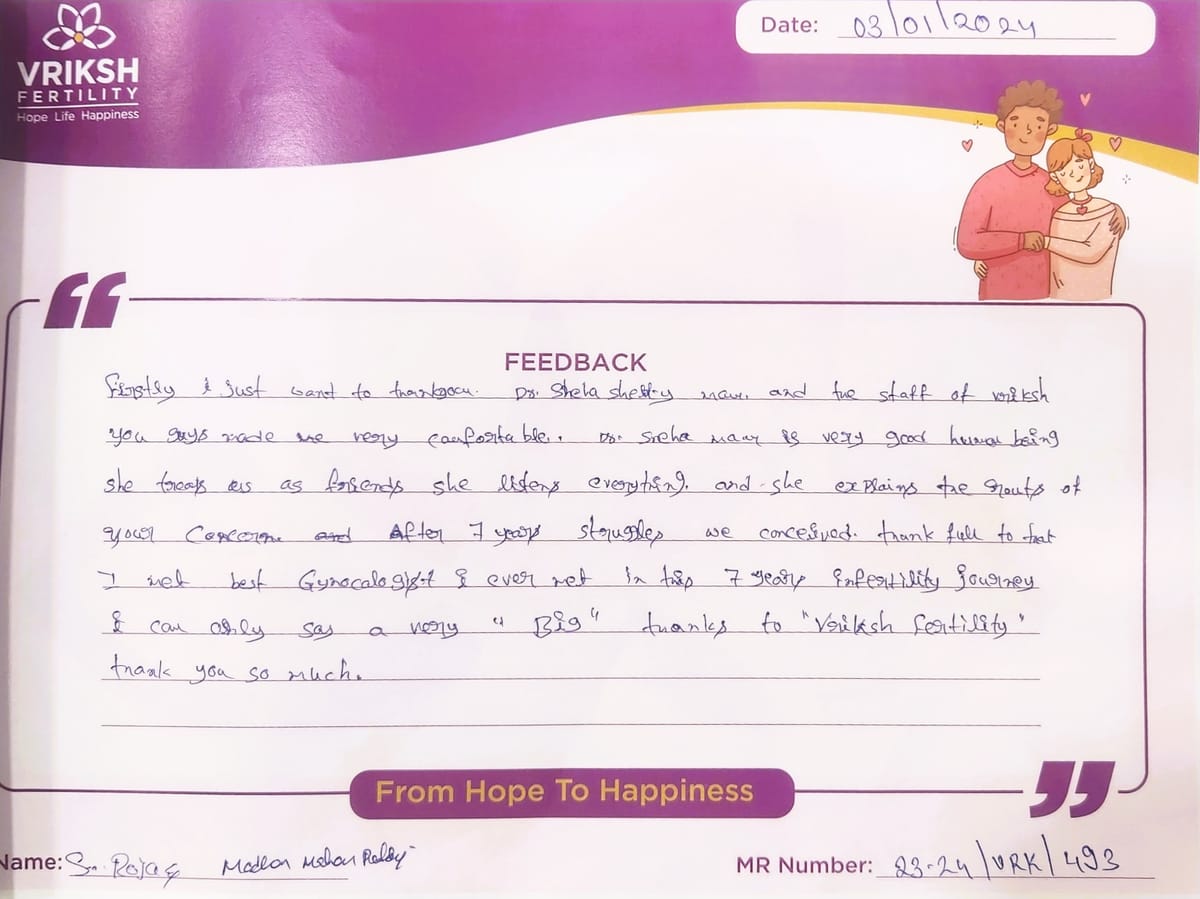 VRIKSH
FERTILITY
Hope Life Happiness
Date: 03/01/2024
FEEDBACK
Firstly i just want to thankyou. Dr. Sheha shetty mam. and the staff of vriksh
you guys made me very comfortable. Dr. Sneha mam is very good human being
she treats us as friends she listens everything. and she explains the routs of
your Concern and After 7 years struggles we conceived. thank full to that
I met best Gynocalogist i ever met in this 7 years infertility journey
i can only say a very "Big" thanks to "Vriksh fertility"
thank you so much.
From Hope To Happiness
Name: Roja & Madhan Mohan Reddy
MR Number: 23-24/VRK/493